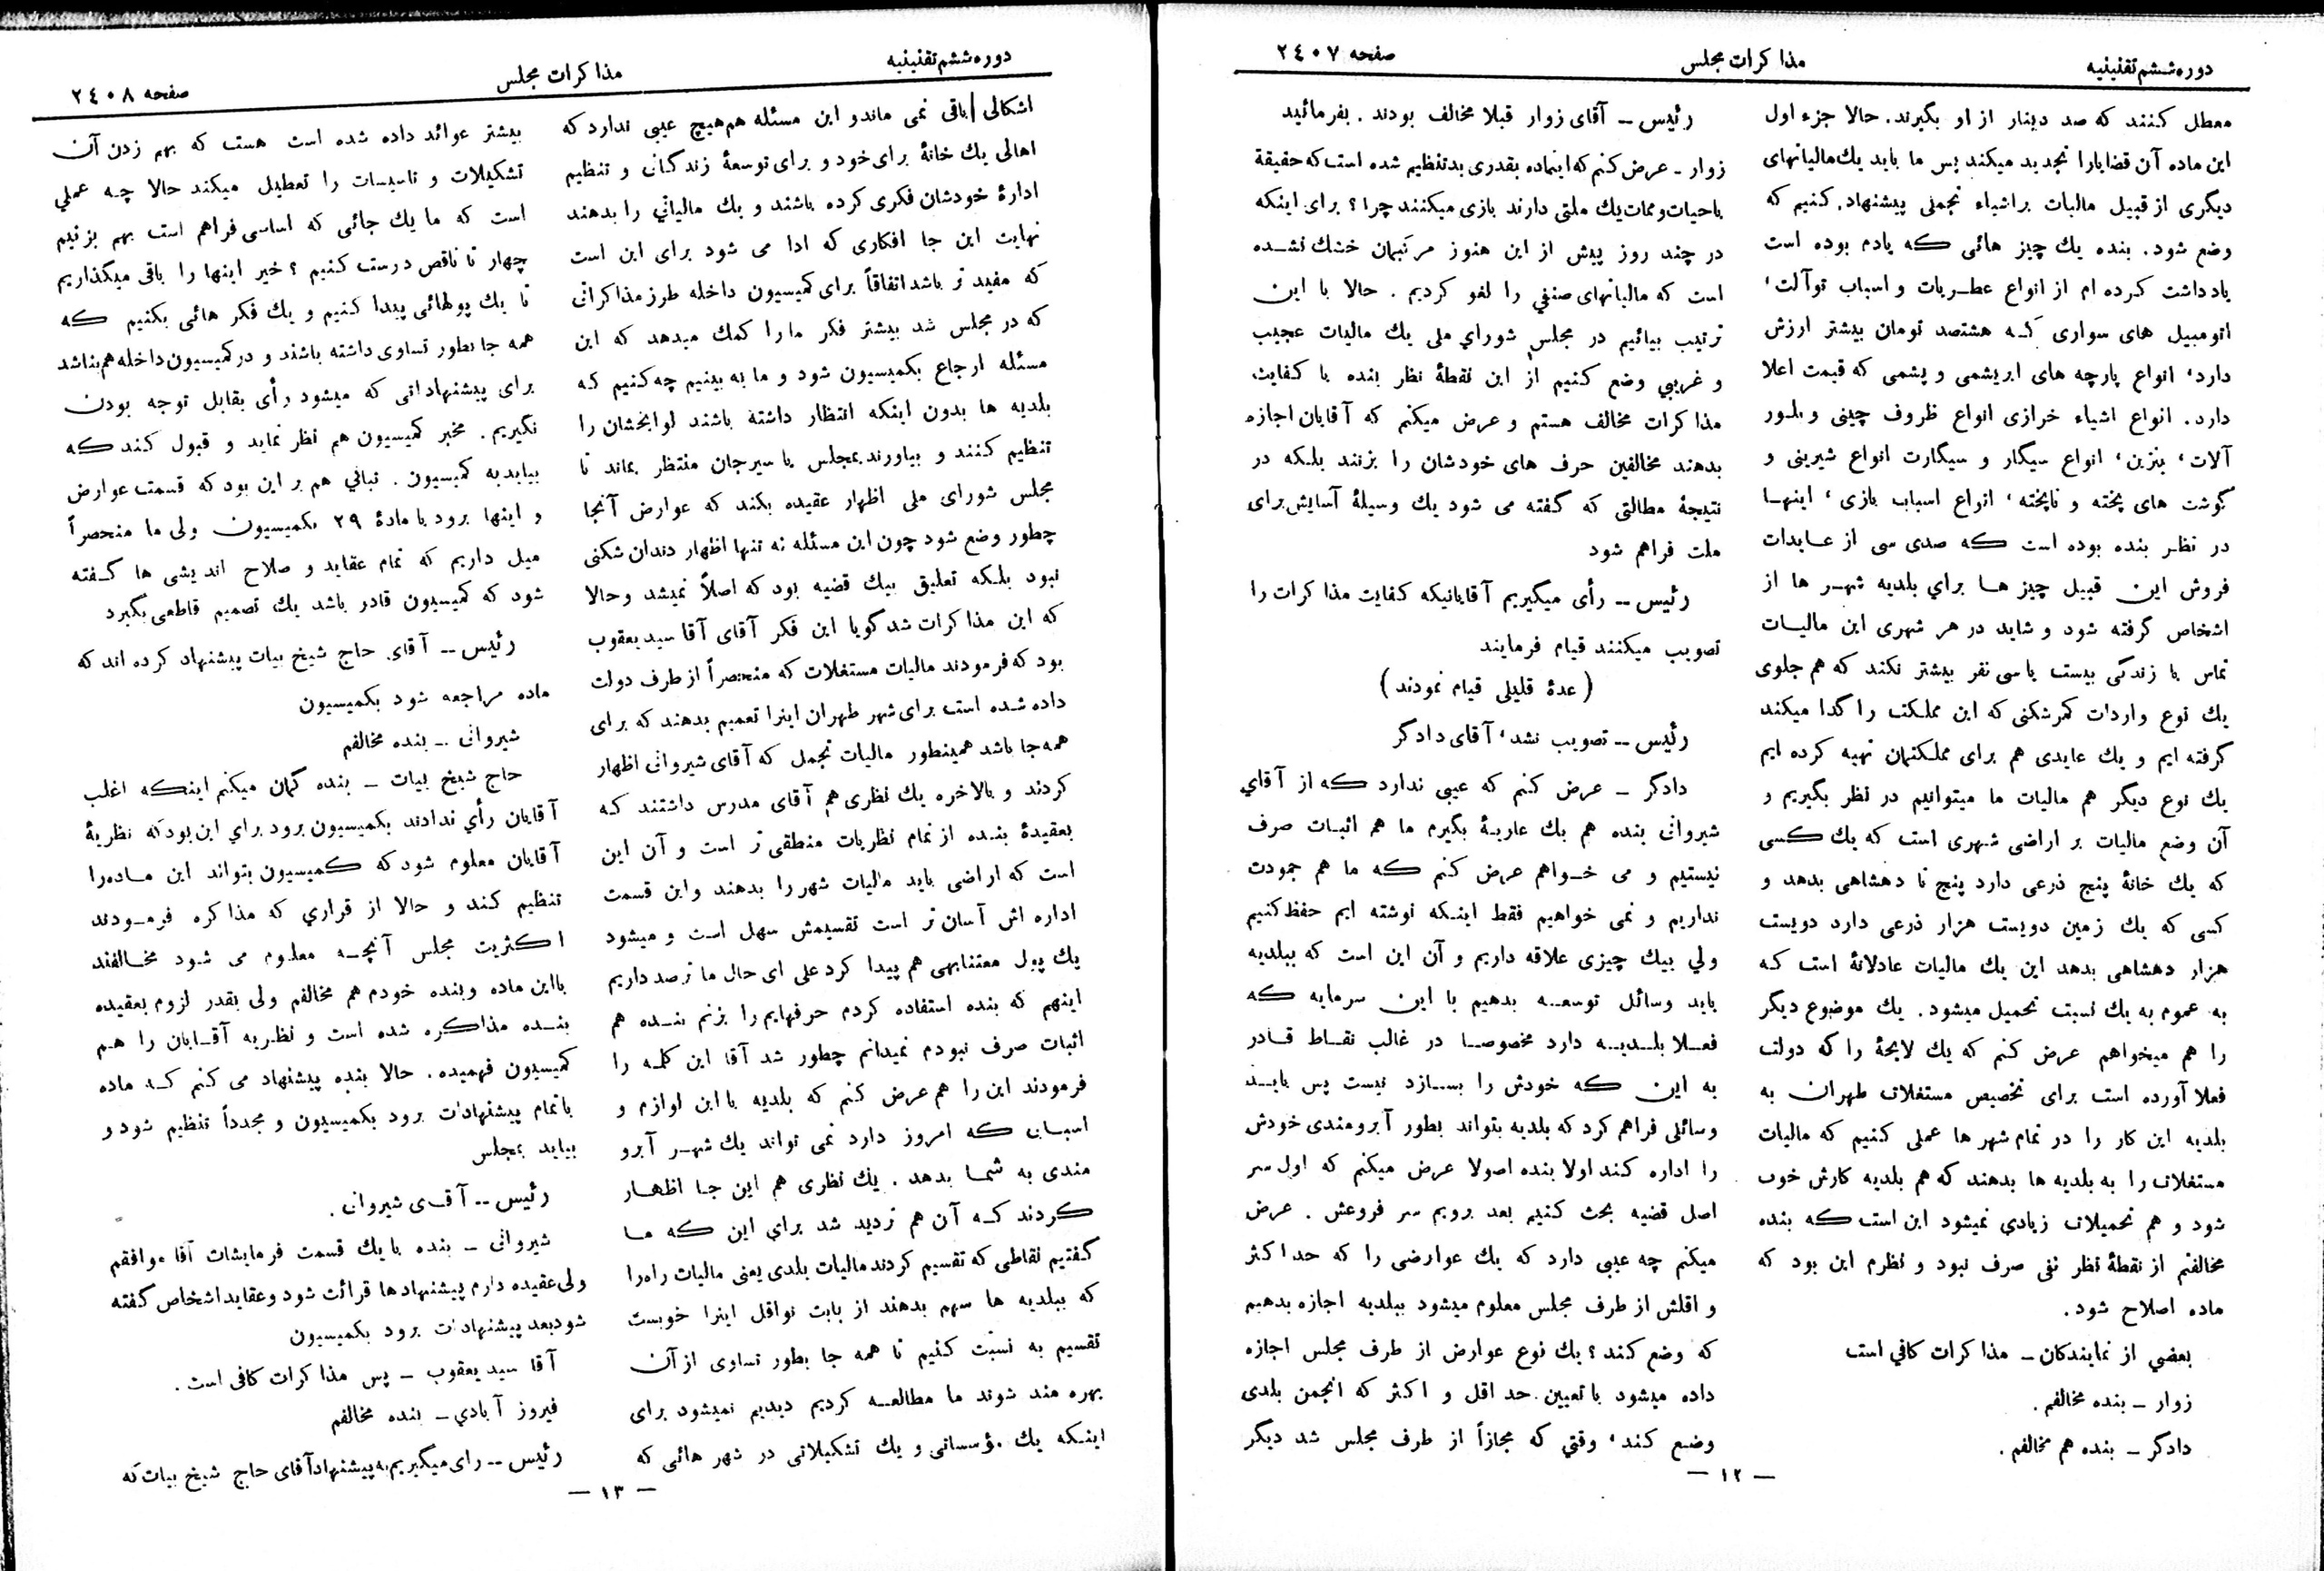 دوره ششم تقنینیه
مذاکرات مجلس
صفحه ۲٤۰۷
معطل کنند که صد دینار از او بگیرند. حالا جزء اول
این ماده آن قضایا را تجدید میکند پس ما باید یك مالیاتهای
دیگری از قبیل مالیات بر اشیاء تجملی پیشنهاد. کنیم که
وضع شود. بنده یك چیز هائی که یادم بوده است
یادداشت کرده ام از انواع عطریات و اسباب توآلت،
اتومبیل های سواری که هشتصد تومان بیشتر ارزش
دارد، انواع پارچه های ابریشمی و پشمی که قیمت اعلا
دارد. انواع اشیاء خرازی انواع ظروف چینی و بلور
آلات، بنزین، انواع سیگار و سیگارت انواع شیرینی و
گوشت های پخته و ناپخته، انواع اسباب بازی، اینها
در نظر بنده بوده است که صدی سی از عایدات
فروش این قبیل چیز ها برای بلدیه شهر ها از
اشخاص گرفته شود و شاید در هر شهری این مالیات
تماس با زندگی بیست یا سی نفر بیشتر نکند که هم جلوی
یك نوع واردات کمرشکنی که این مملکت را گدا میکند
گرفته ایم و یك عایدی هم برای مملکتمان تهیه کرده ایم
یك نوع دیگر هم مالیات ما میتوانیم در نظر بگیریم و
آن وضع مالیات بر اراضی شهری است که یك کسی
که یك خانهٔ پنج ذرعی دارد پنج تا دهشاهی بدهد و
کسی که یك زمین دویست هزار ذرعی دارد دویست
هزار دهشاهی بدهد این یك مالیات عادلانهٔ است که
به عموم به یك نسبت تحمیل میشود. یك موضوع دیگر
را هم میخواهم عرض کنم که یك لایحهٔ را که دولت
فعلا آورده است برای تخصیص مستغلات طهران به
بلدیه این کار را در تمام شهر ها عملی کنیم که مالیات
مستغلات را به بلدیه ها بدهند که هم بلدیه کارش خوب
شود و هم تحمیلات زیادی نمیشود این است که بنده
مخالفتم از نقطهٔ نظر نفی صرف نبود و نظرم این بود که
ماده اصلاح شود.
بعضی از نمایندکان ـ مذاکرات کافی است
زوار ـ بنده مخالفم.
دادگر ـ بنده هم مخالفم.
رئیس ـ آقای زوار قبلا مخالف بودند. بفرمائید
زوار ـ عرض کنم که اینماده بقدری بد تنظیم شده است که حقیقة
با حیات و ممات یك ملتی دارند بازی میکنند چرا؟ برای اینکه
در چند روز پیش از این هنوز مرکبمان خشك نشده
است که مالیاتهای صنفی را لغو کردیم. حالا با این
ترتیب بیائیم در مجلس شورای ملی یك مالیات عجیب
و غریبی وضع کنیم از این نقطهٔ نظر بنده با کفایت
مذاکرات مخالف هستم و عرض میکنم که آقایان اجازه
بدهند مخالفین حرف های خودشان را بزنند بلکه در
نتیجهٔ مطالبی که گفته می شود یك وسیلهٔ آسایش برای
ملت فراهم شود
رئیس ـ رأی میگیریم آقایانیکه کفایت مذاکرات را
تصویب میکنند قیام فرمایند
(عدهٔ قلیلی قیام نمودند)
رئیس ـ تصویب نشد، آقای دادگر
دادگر ـ عرض کنم که عیبی ندارد که از آقای
شیروانی بنده هم یك عاریهٔ بگیرم ما هم اثبات صرف
نیستیم و می خواهم عرض کنم که ما هم جمودت
نداریم و نمی خواهیم فقط اینکه نوشته ایم حفظ کنیم
ولی بیك چیزی علاقه داریم و آن این است که ببلدیه
باید وسائل توسعه بدهیم با این سرمایه که
فعلا بلدیه دارد مخصوصا در غالب نقاط قادر
به این که خودش را بسازد نیست پس باید
وسائلی فراهم کرد که بلدیه بتواند بطور آبرومندی خودش
را اداره کند اولا بنده اصولا عرض میکنم که اول سر
اصل قضیه بحث کنیم بعد برویم سر فروعش. عرض
میکنم چه عیبی دارد که یك عوارضی را که حد اکثر
و اقلش از طرف مجلس معلوم میشود ببلدیه اجازه بدهیم
که وضع کند؟ یك نوع عوارض از طرف مجلس اجازه
داده میشود با تعیین. حد اقل و اکثر که انجمن بلدی
وضع کند، وقتی که مجازاً از طرف مجلس شد دیگر
ـ ۱۲ ـ
دوره ششم تقنینیه
مذاکرات مجلس
صفحه ۲٤۰۸
اشکالی باقی نمی ماند و این مسئله هم هیچ عیبی ندارد که
اهالی یك خانهٔ برای خود و برای توسعهٔ زندگانی و تنظیم
ادارهٔ خودشان فکری کرده باشند و یك مالیاتی را بدهند
نهایت این جا افکاری که ادا می شود برای این است
که مفید تر باشد اتفاقاً برای کمیسیون داخله طرز مذاکراتی
که در مجلس شد بیشتر فکر ما را کمك میدهد که این
مسئله ارجاع بکمیسیون شود و ما به بینیم چه کنیم که
بلدیه ها بدون اینکه انتظار داشته باشند لوایحشان را
تنظیم کنند و بیاورند بمجلس یا سیرجان منتظر بماند تا
مجلس شورای ملی اظهار عقیده بکند که عوارض آنجا
چطور وضع شود چون این مسئله نه تنها اظهار دندان شکنی
نبود بلکه تعلیق بیك قضیه بود که اصلاً نمیشد و حالا
که این مذاکرات شد گویا این فکر آقای آقا سید یعقوب
بود که فرمودند مالیات مستغلات که منحصراً از طرف دولت
داده شده است برای شهر طهران اینرا تعمیم بدهند که برای
همه جا باشد همینطور مالیات تجمل که آقای شیروانی اظهار
کردند و بالاخره یك نظری هم آقای مدرس داشتند که
بعقیدهٔ بنده از تمام نظریات منطقی تر است و آن این
است که اراضی باید مالیات شهر را بدهند و این قسمت
اداره اش آسان تر است تقسیمش سهل است و میشود
یك پول معتنابهی هم پیدا کرد علی ای حال ما ترصد داریم
اینهم که بنده استفاده کردم حرفهایم را بزنم بنده هم
اثبات صرف نبودم نمیدانم چطور شد آقا این کلمه را
فرمودند این را هم عرض کنم که بلدیه با این لوازم و
اسباب که امروز دارد نمی تواند یك شهر آبرو
مندی به شما بدهد. یك نظری هم این جا اظهار
کردند که آن هم تردید شد برای این که ما
گفتیم نقاطی که تقسیم کردند مالیات بلدی یعنی مالیات راه را
که ببلدیه ها سهم بدهند از بابت نواقل اینرا خوبست
تقسیم به نسبت کنیم تا همه جا بطور تساوی از آن
بهره مند شوند ما مطالعه کردیم دیدیم نمیشود برای
اینکه یك مؤسساتی و یك تشکیلاتی در شهر هائی که
بیشتر عوائد داده شده است هست که بهم زدن آن
تشکیلات و تاسیسات را تعطیل میکند حالا چه عملی
است که ما یك جائی که اساسی فراهم است بهم بزنیم
چهار تا ناقص درست کنیم؟ خیر اینها را باقی میگذاریم
تا یك پولهائی پیدا کنیم و یك فکر هائی بکنیم که
همه جا بطور تساوی داشته باشند و در کمیسیون داخله هم بنا شد
برای پیشنهاداتی که میشود رأی بقابل توجه بودن
نگیریم. مخبر کمیسیون هم نظر نماید و قبول کند که
بیاید به کمیسیون. تبانی هم بر این بود که قسمت عوارض
و اینها برود با مادهٔ ۲۹ بکمیسیون ولی ما منحصراً
میل داریم که تمام عقاید و صلاح اندیشی ها گفته
شود که کمیسیون قادر باشد یك تصمیم قاطعی بگیرد
رئیس ـ آقای حاج شیخ بیات پیشنهاد کرده اند که
ماده مراجعه شود بکمیسیون
شیروانی ـ بنده مخالفم
حاج شیخ بیات ـ بنده گمان میکنم اینکه اغلب
آقایان رأی ندادند بکمیسیون برود برای این بود که نظریهٔ
آقایان معلوم شود که کمیسیون بتواند این ماده را
تنظیم کند و حالا از قراری که مذاکره فرمودند
اکثریت مجلس آنچه معلوم می شود مخالفند
با این ماده و بنده خودم هم مخالفم ولی بقدر لزوم بعقیده
بنده مذاکره شده است و نظریه آقایان را هم
کمیسیون فهمیده. حالا بنده پیشنهاد می کنم که ماده
با تمام پیشنهادات برود بکمیسیون و مجدداً تنظیم شود و
بیاید بمجلس
رئیس ـ آقای شیروانی.
شیروانی ـ بنده با یك قسمت فرمایشات آقا موافقم
ولی عقیده دارم پیشنهادها قرائت شود و عقاید اشخاص گفته
شود بعد پیشنهادات برود بکمیسیون
آقا سید یعقوب ـ پس مذاکرات کافی است.
فیروز آبادی ـ بنده مخالفم
رئیس ـ رای میگیریم به پیشنهاد آقای حاج شیخ بیات که
ـ ۱۳ ـ